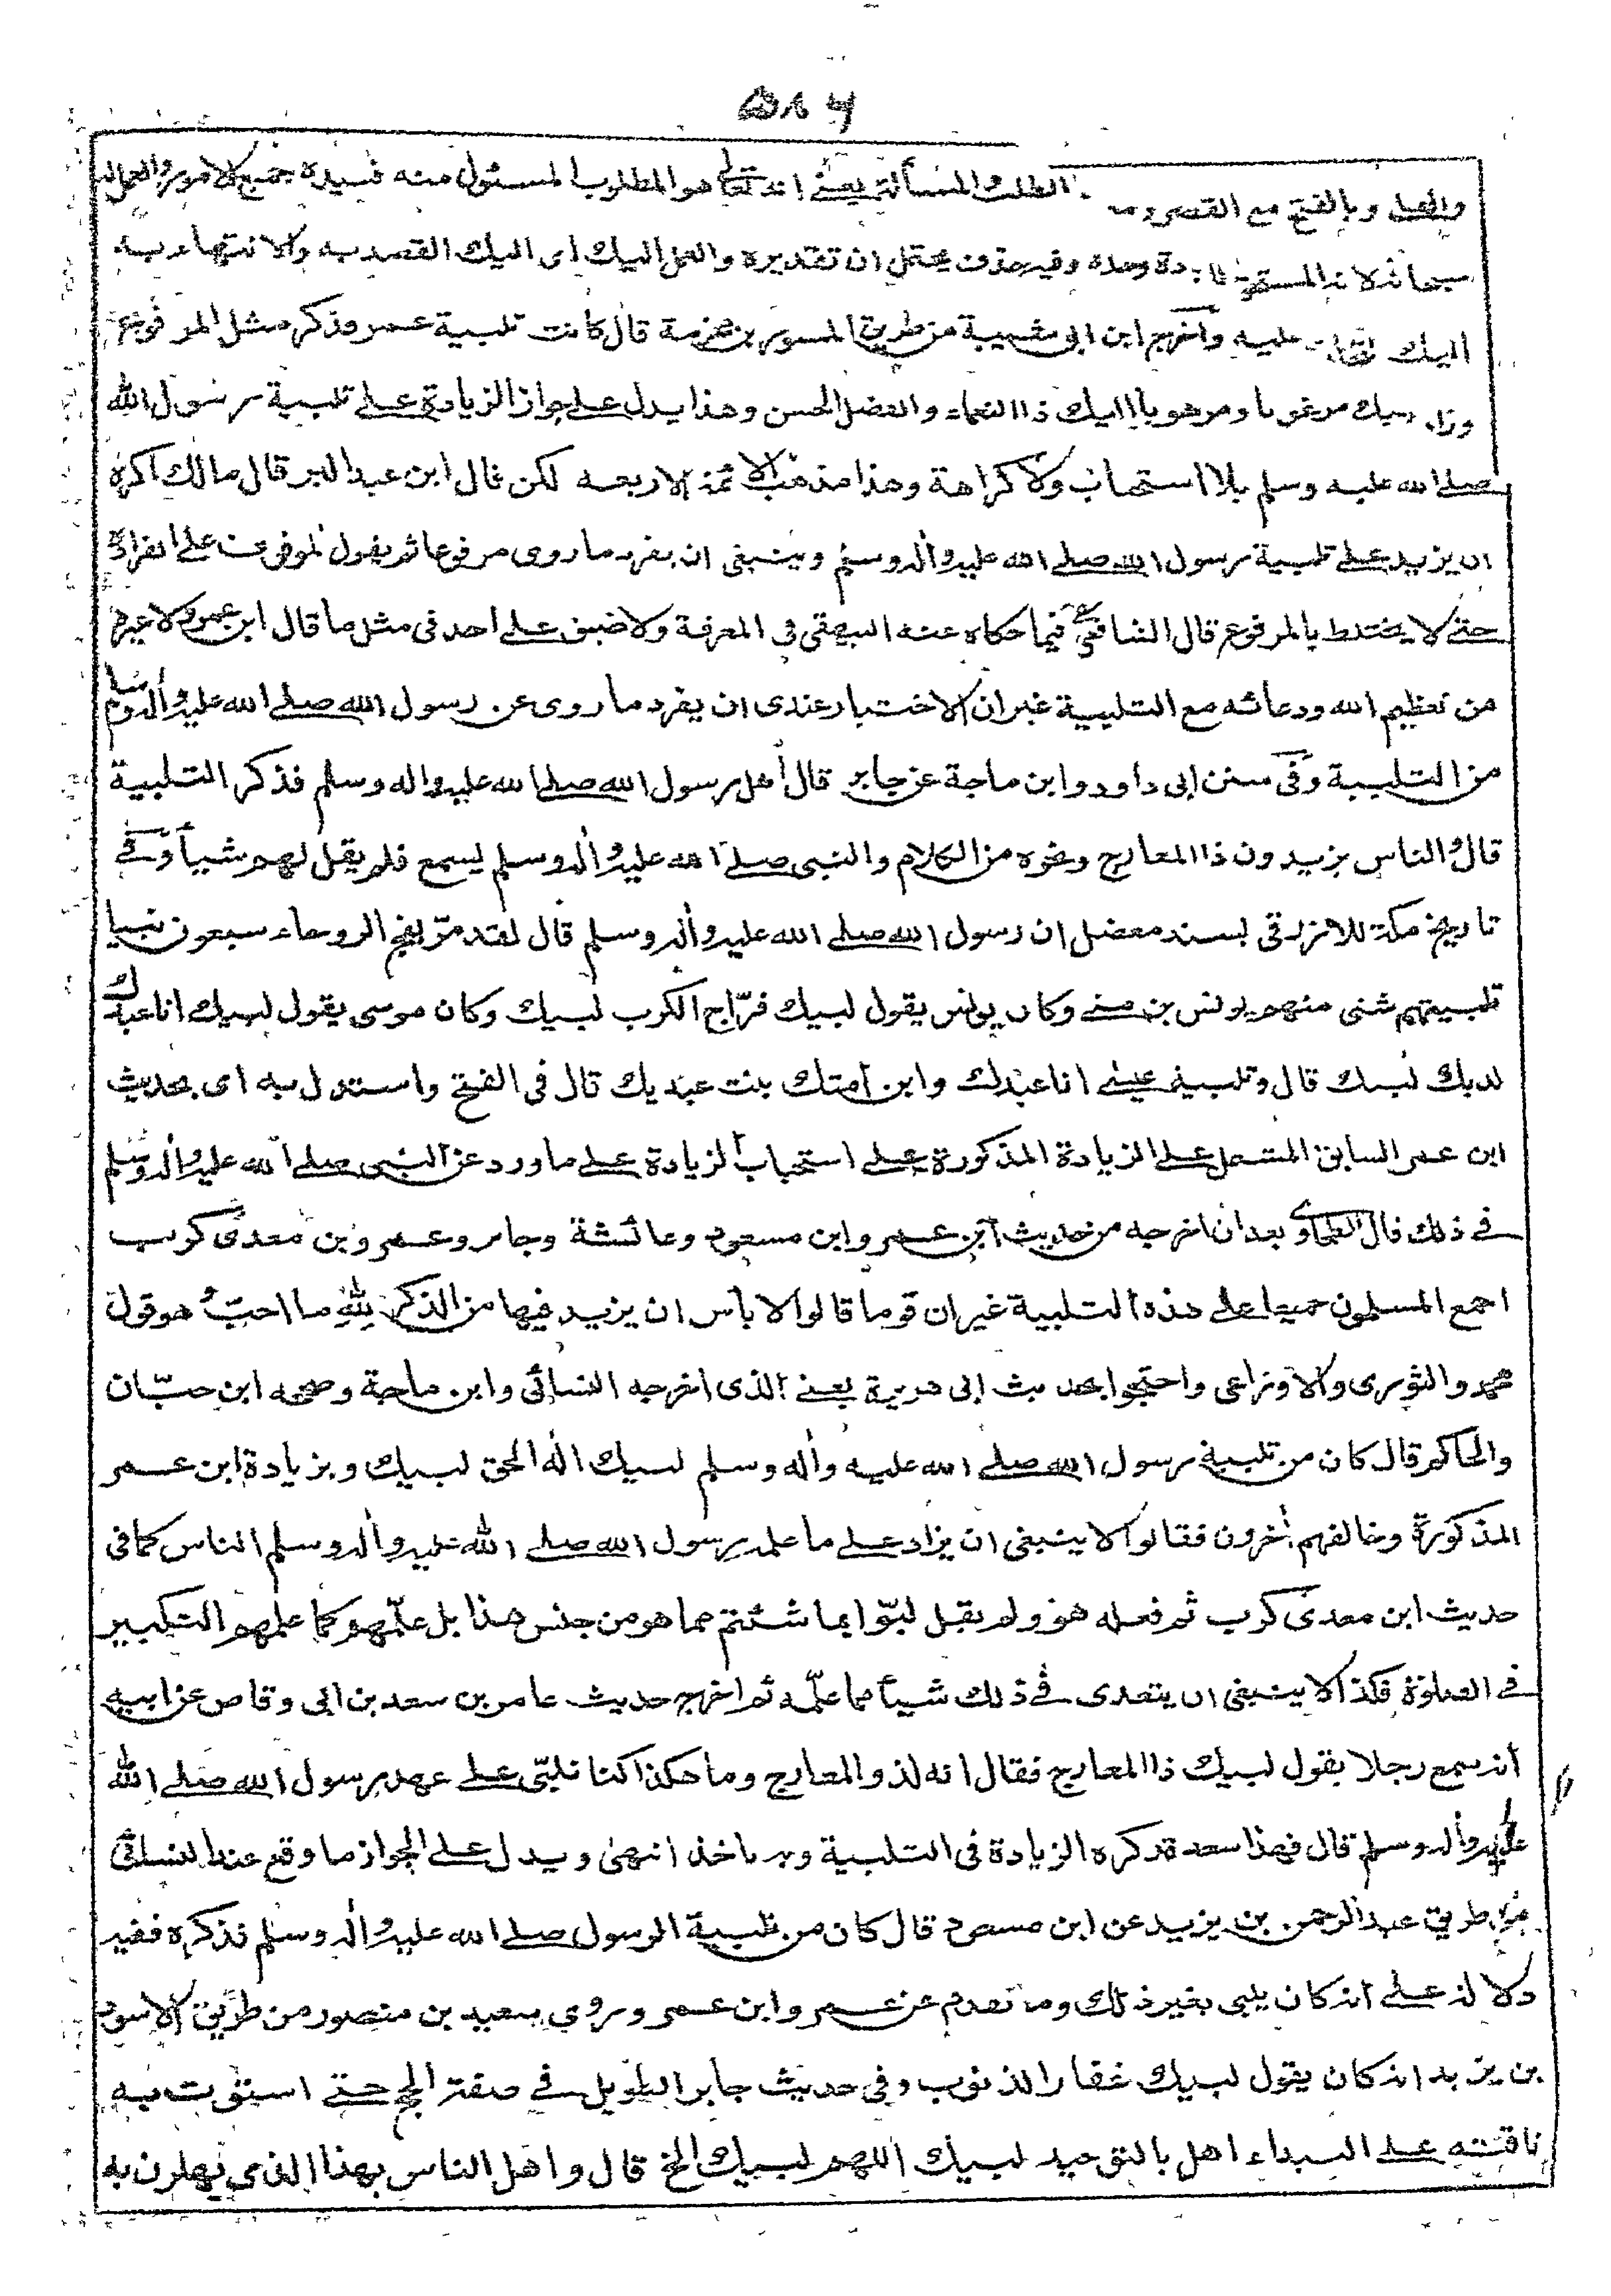 والمد وبالفتح مع القصر ومـ الطلب والمسألة يعنے انه تعالی هو المطلوب المسئول منه فبيده جميع الامور والعمل له
سبحانه لانه المستحق للعبادة وحده وفيه حذف يحتمل ان تقديره والعمل اليك ای اليك القصد به والانتهاء به
اليك لتجازی عليه وأخرج ابن ابی شيبة من طريق المسور بن مخرمة قال كانت تلبية عمر فذكر مثل المرفوع
وزاد لبيك مرغوبا ومرهوبا اليك ذا النعماء والفضل الحسن وهذا يدل علے جواز الزيادة علے تلبية رسول الله
صلے الله عليه وسلم بلا استحباب ولا كراهة وهذا مذهب الائمة الاربعة لكن قال ابن عبد البر قال مالك اكره
ان يزيد علے تلبية رسول الله صلے الله عليه وأله وسلم وينبغی ان يفرد ما روی مرفوعا ثم يقول الموقوف علے انفراده
حتے لا يختلط بالمرفوع قال الشافعی فيما حكاه عنه البيهقی فی المعرفة ولا ضيق علے احد فی مثل ما قال ابن عمر ولا غيره
من تعظيم الله ودعائه مع التلبية غير ان الاختيار عندی ان يفرد ما روی عن رسول الله صلے الله عليه وأله وسلم
من التلبية وفی سنن ابی داود وابن ماجة عن جابر قال أهل رسول الله صلے الله عليه واله وسلم فذكر التلبية
قال والناس يزيدون ذا المعارج ونحوه من الكلام والنبی صلے الله عليه وأله وسلم يسمع فلم يقل لهم شيأ وفے
تاريخ مكة للازرقی بسند معضل ان رسول الله صلے الله عليه وأله وسلم قال لقد مرّ بفج الروحاء سبعون نبيا
تلبيتهم شتی منهم يونس بن متے وكان يونس يقول لبيك فرّاج الكرب لبيك وكان موسی يقول لبيك انا عبدك
لديك لبيك قال وتلبية عيسے انا عبدك وابن أمتك بنت عبديك قال فی الفتح واستدل به ای بحديث
ابن عمر السابق المشتمل علے الزيادة المذكورة علے استحباب الزيادة علے ما ورد عن النبی صلے الله عليه وأله وسلم
فے ذلك قال الطحاوی بعد ان اخرجه من حديث ابن عمر وابن مسعود وعائشة وجابر وعمرو بن معدی كرب
اجمع المسلمون جميعا علے هذه التلبية غير ان قوما قالوا لا بأس ان يزيد فيها من الذكر لِلّٰهِ ما احبّ وهو قول
محمد والثوری والاوزاعی واحتجوا بحديث ابی هريرة يعنے الذی اخرجه النسائی وابن ماجة وصححه ابن حبّان
والحاكم قال كان من تلبية رسول الله صلے الله عليه وأله وسلم لبيك اله الحق لبيك وبزيادة ابن عمر
المذكورة وخالفهم أخرون فقالوا لا ينبغی ان يزاد علے ما علمه رسول الله صلے الله عليه وأله وسلم الناس كما فی
حديث ابن معدی كرب ثم فعله هو ولم يقل لبّوا بما شئتم مما هو من جنس هذا بل علّمهم كما علمهم التكبير
فے الصلوة فكذا لا ينبغی ان يتعدی فے ذلك شيأ مما علّمه ثم اخرج حديث عامر بن سعد بن ابی وقاص عن ابيه
أنه سمع رجلا يقول لبيك ذا المعارج فقال انه لذو المعارج وما هكذا كنا نلبّی علے عهد رسول الله صلے الله
عليه وأله وسلم قال فهذا سعد قد كره الزيادة فی التلبية وبه ناخذ انتهی ويدل علے الجواز ما وقع عند النسائی
من طريق عبد الرحمن بن يزيد عن ابن مسعود قال كان من تلبية الرسول صلے الله عليه وأله وسلم فذكره ففيه
دلالة علے انه كان يلبی بغير ذلك وما تقدم عن عمر وابن عمر وروی سعيد بن منصور من طريق الاسود
بن يزيد انه كان يقول لبيك غفار الذنوب وفی حديث جابر الطويل فے صفة الحج حتے استوت به
ناقته علے البيداء اهل بالتوحيد لبيك اللهم لبيك الخ قال واهل الناس بهذا الذی يهلون به